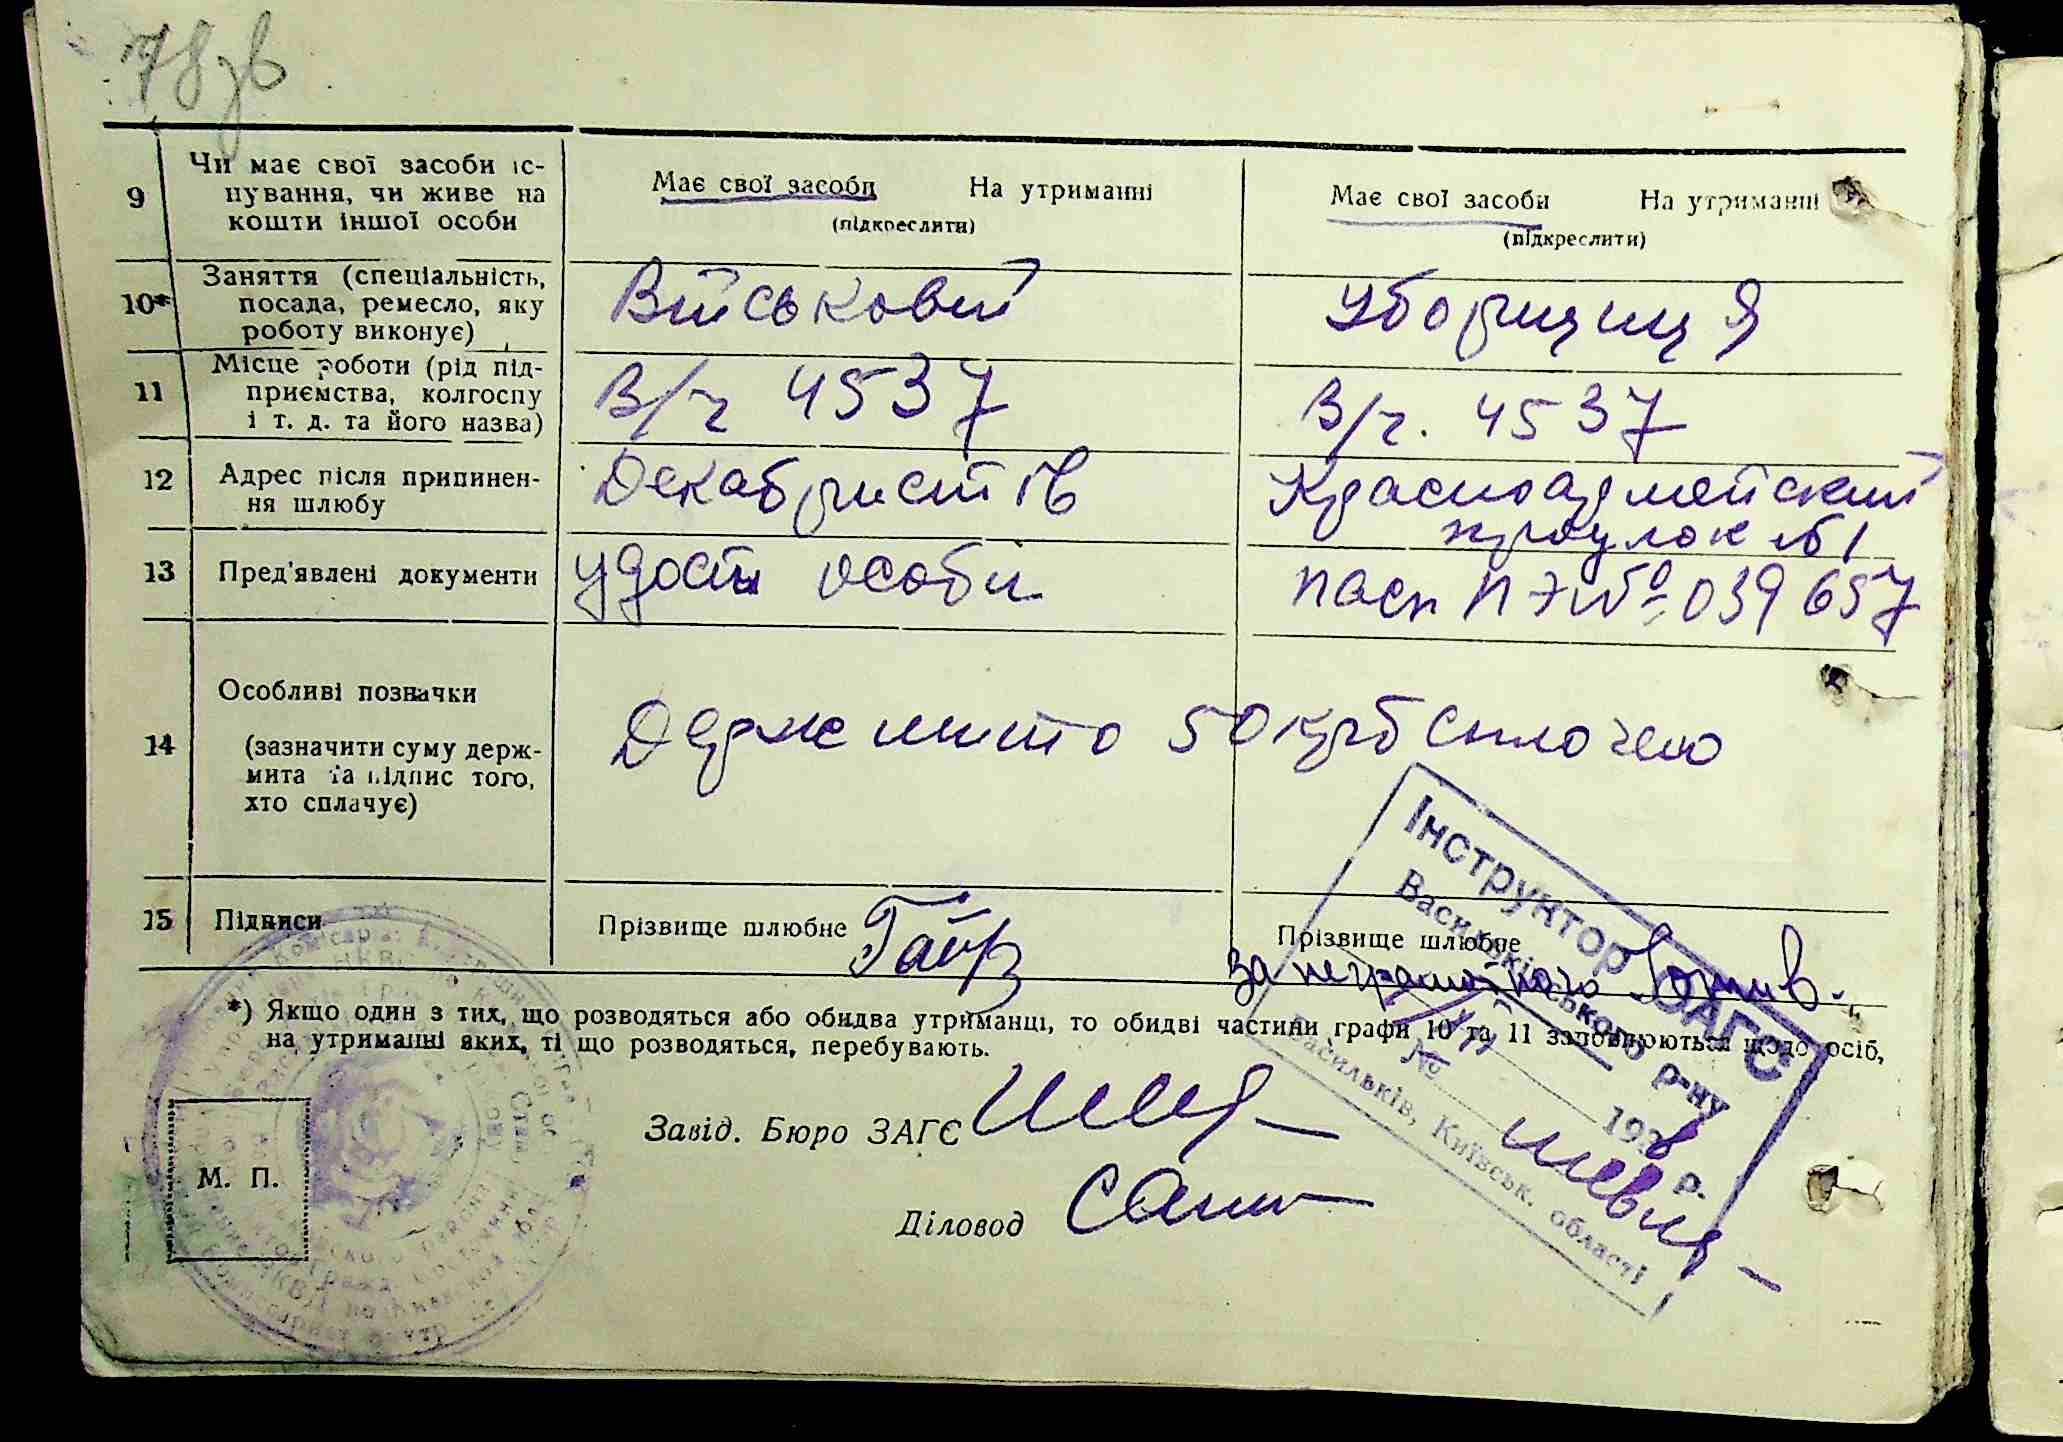 78зв
9 Чи має свої засоби іс-
нування, чи живе на
кошти іншої особи
Має свої засоби На утриманні
(підкреслити)
Має свої засоби На утриманні
(підкреслити)
10* Заняття (спеціальність,
посада, ремесло, яку
роботу виконує)
Військовий
Уборщиця
11 Місце роботи (рід під-
приємства, колгоспу
і т. д. та його назва)
В/ч 4537
В/ч. 4537
12 Адрес після припинен-
ня шлюбу
Декабристів
Красноармейский
проулок №1
13 Пред'явлені документи
удост особи
пасп ПЭ № 039657
14 Особливі позначки
(зазначити суму держ-
мита та підпис того,
хто сплачує)
Держ мито 50 крб сплочено
15 Підписи
Прізвище шлюбне
Прізвище шлюбне
за неграмотного
*) Якщо один з тих, що розводяться або обидва утриманці, то обидві частини графи 10 та 11 заповнюються щодо осіб,
на утриманні яких, ті що розводяться, перебувають.
Завід. Бюро ЗАГС
Діловод
М. П.
Інструктор ЗАГС
Васильківського р-ну
№ 193 р.
Васильків, Київськ. області